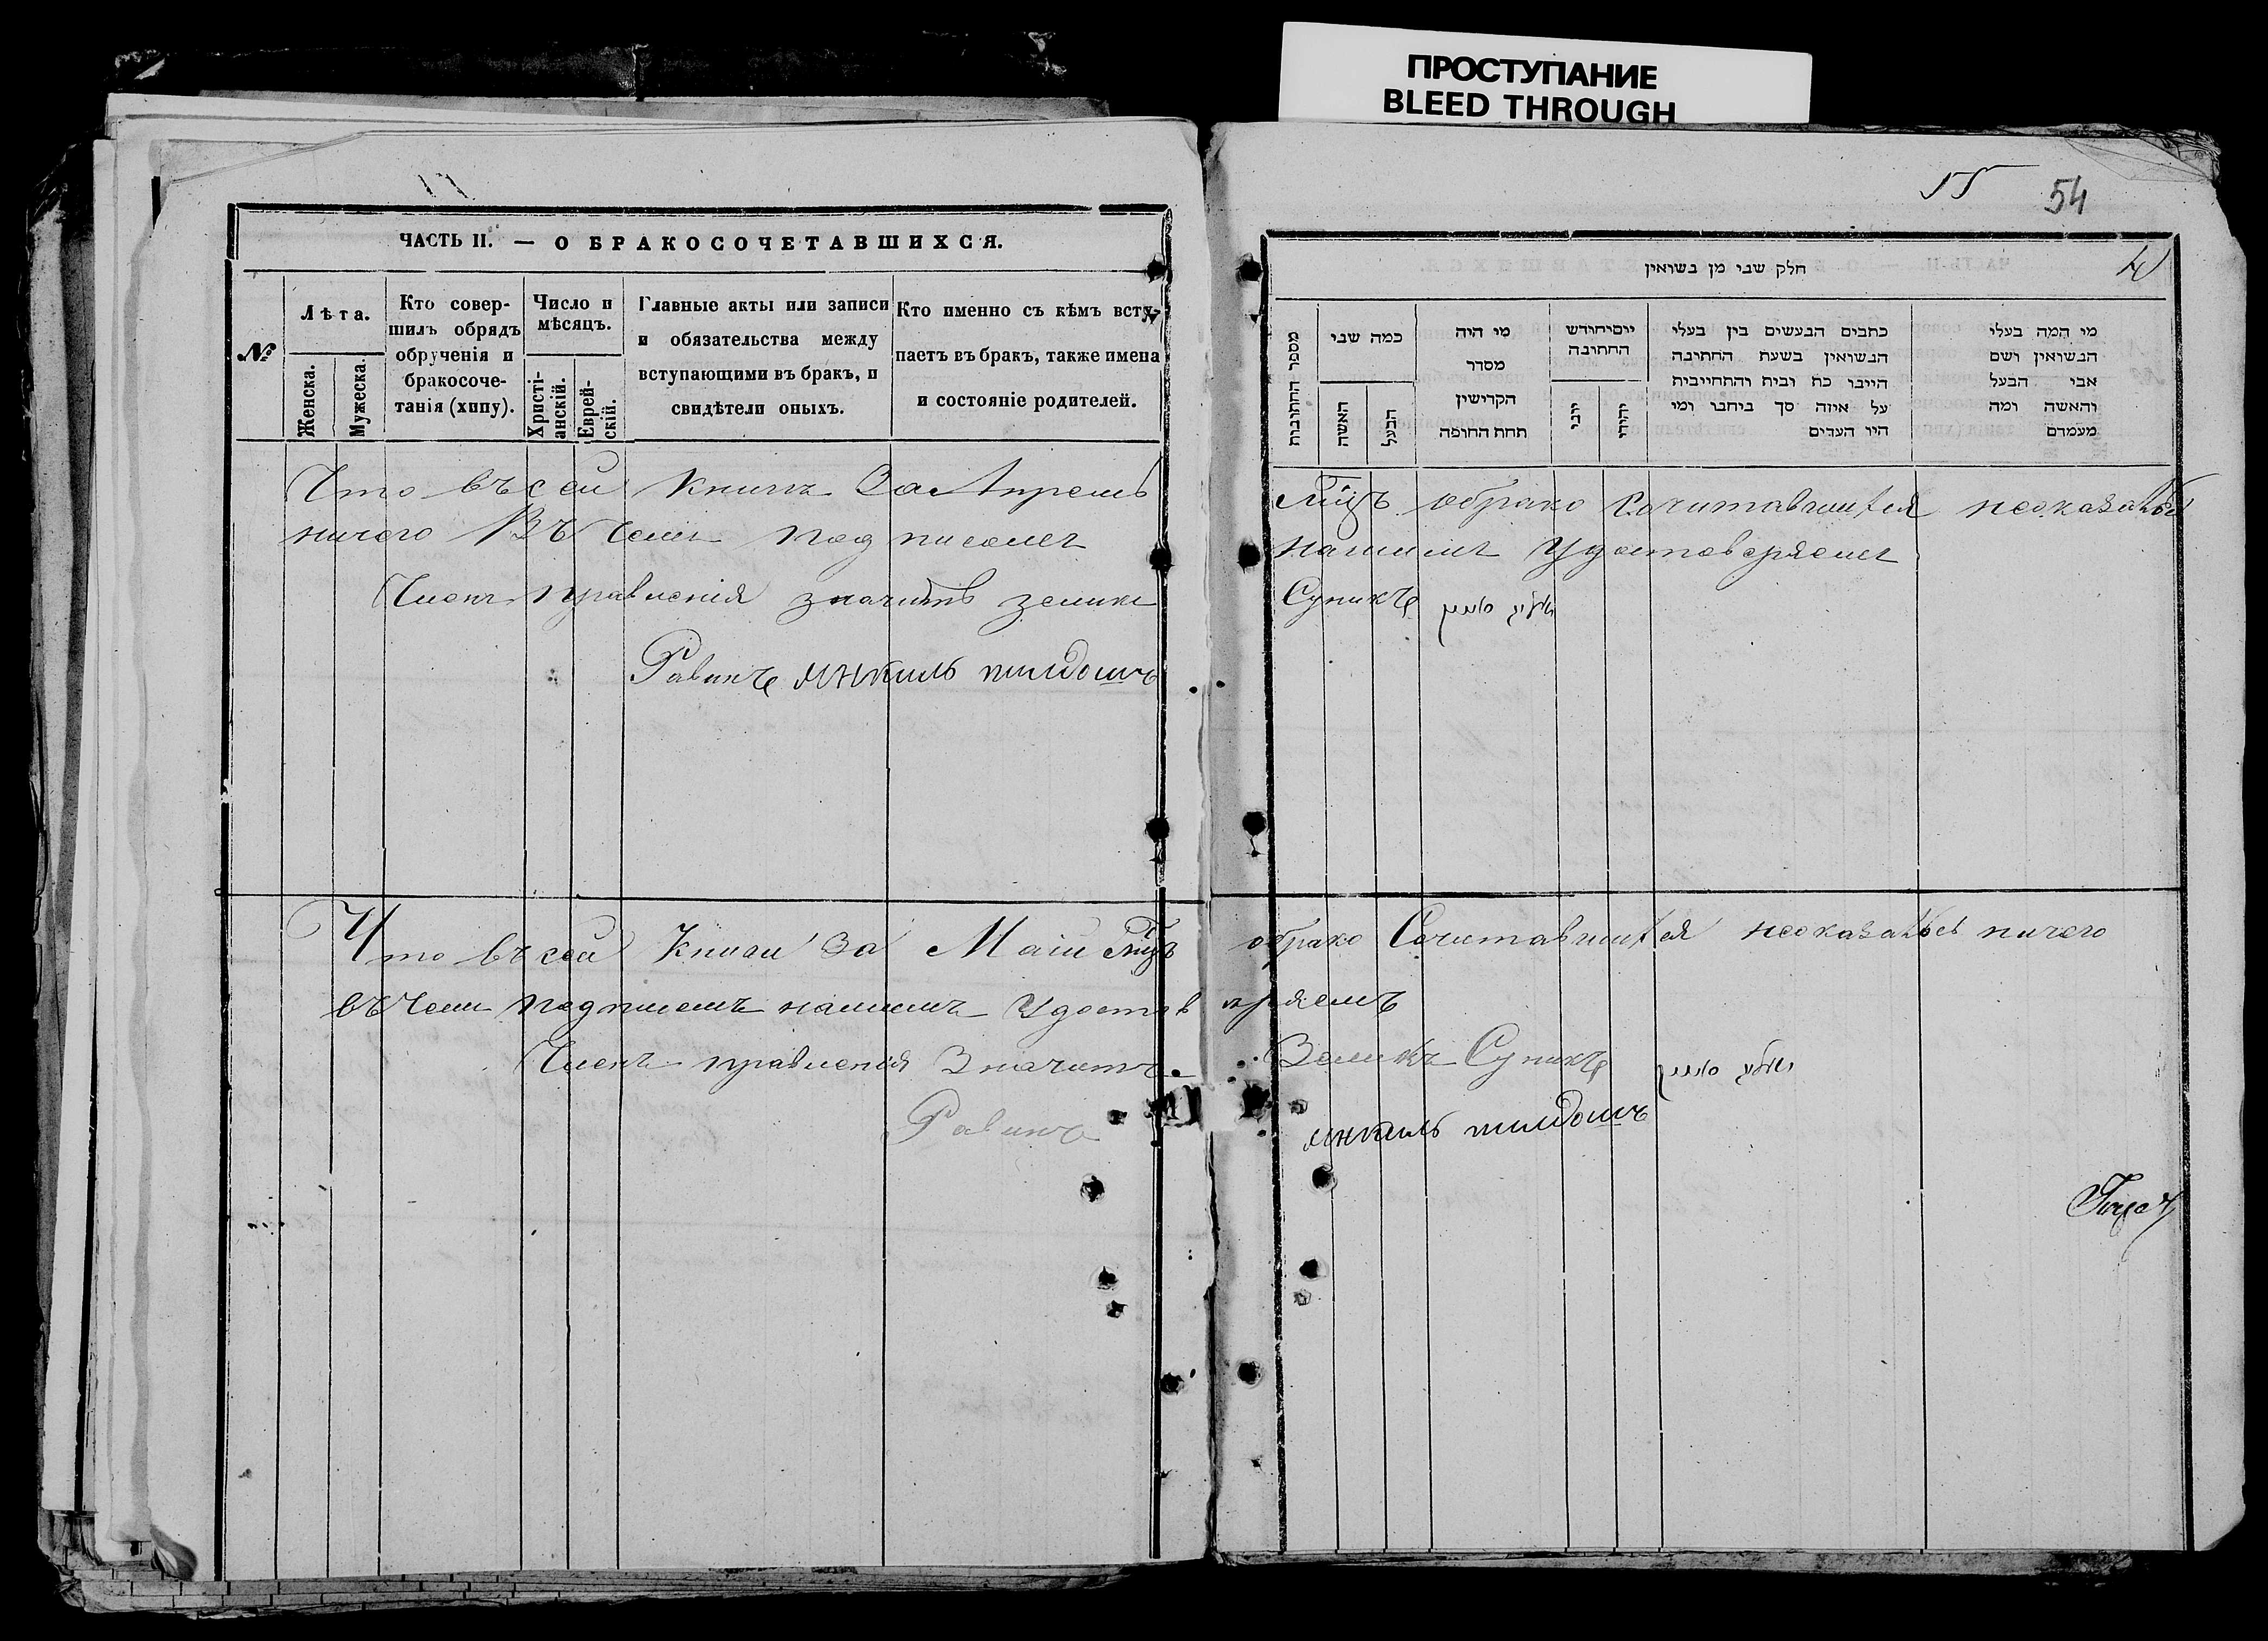 ПРОСТУПАНИЕ
BLEED THROUGH
54
4
ЧАСТЬ II. — О БРАКОСОЧЕТАВШИХСЯ.
№
Лѣта.
Женска.
Мужеска.
Кто совер-
шилъ обрядъ
обрученія и
бракосоче-
танія (хипу).
Число и
мѣсяцъ.
Христі-
анскій.
Еврей-
скій.
Главные акты или записи
и обязательства между
вступающими въ бракъ, и
свидѣтели оныхъ.
Кто именно съ кѣмъ всту-
паетъ въ бракъ, также имена
и состояніе родителей.
חלק שני מן נשואין
מספר החתונות
כמה שני
האשה
הבעל
מי היה
מסדר
הקדישין
תחת החופה
יום וחודש
החתונה
יוני
יהודי
כתבים הנעשים בין בעלי
הנשואין בשעת החתונה
היינו כח ובית והתחייבית
על איזה סך ביחבו ומי
היו העדים
מי המה בעלי
הנשואין ושם
אבי הבעל
והאשה ומה
מעמדם
Что въ сей книги За Апрель мцъ обрако Сочитавшихся неоказалось
ничего Въ Чемъ подписомъ нашимъ удостоверяемъ
Членъ правленія значитъ зеликъ Супикъ
Равинъ
Что въ сей Книги За Маій мцъ обрако Сочитавшихся неоказалось ничего
въ Чемъ подписомъ нашимъ Удостоверяемъ
Членъ правленія Значитъ Зеликъ Супикъ
Равинъ